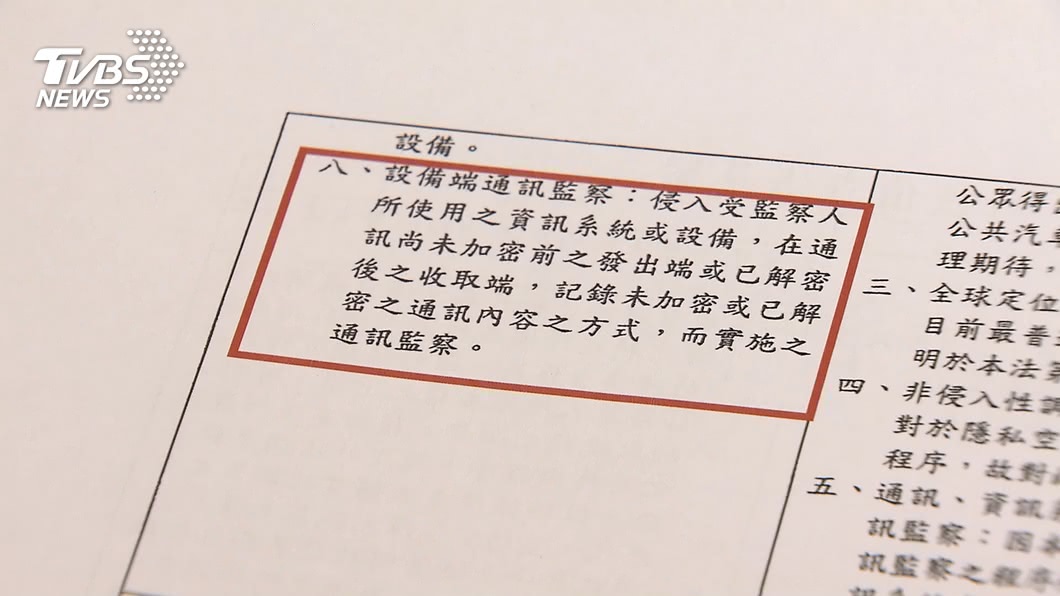 TVBS
NEWS
設備。
八、設備端通訊監察：侵入受監察人
所使用之資訊系統或設備，在通
訊尚未加密前之發出端或已解密
後之收取端，記錄未加密或已解
密之通訊內容之方式，而實施之
通訊監察。
公眾得
公共汽
理期待，
三、全球定位
目前最普
明於本法第
四、非侵入性調
對於隱私空
程序，故對
五、通訊、資訊
訊監察：因
訊監察之程序